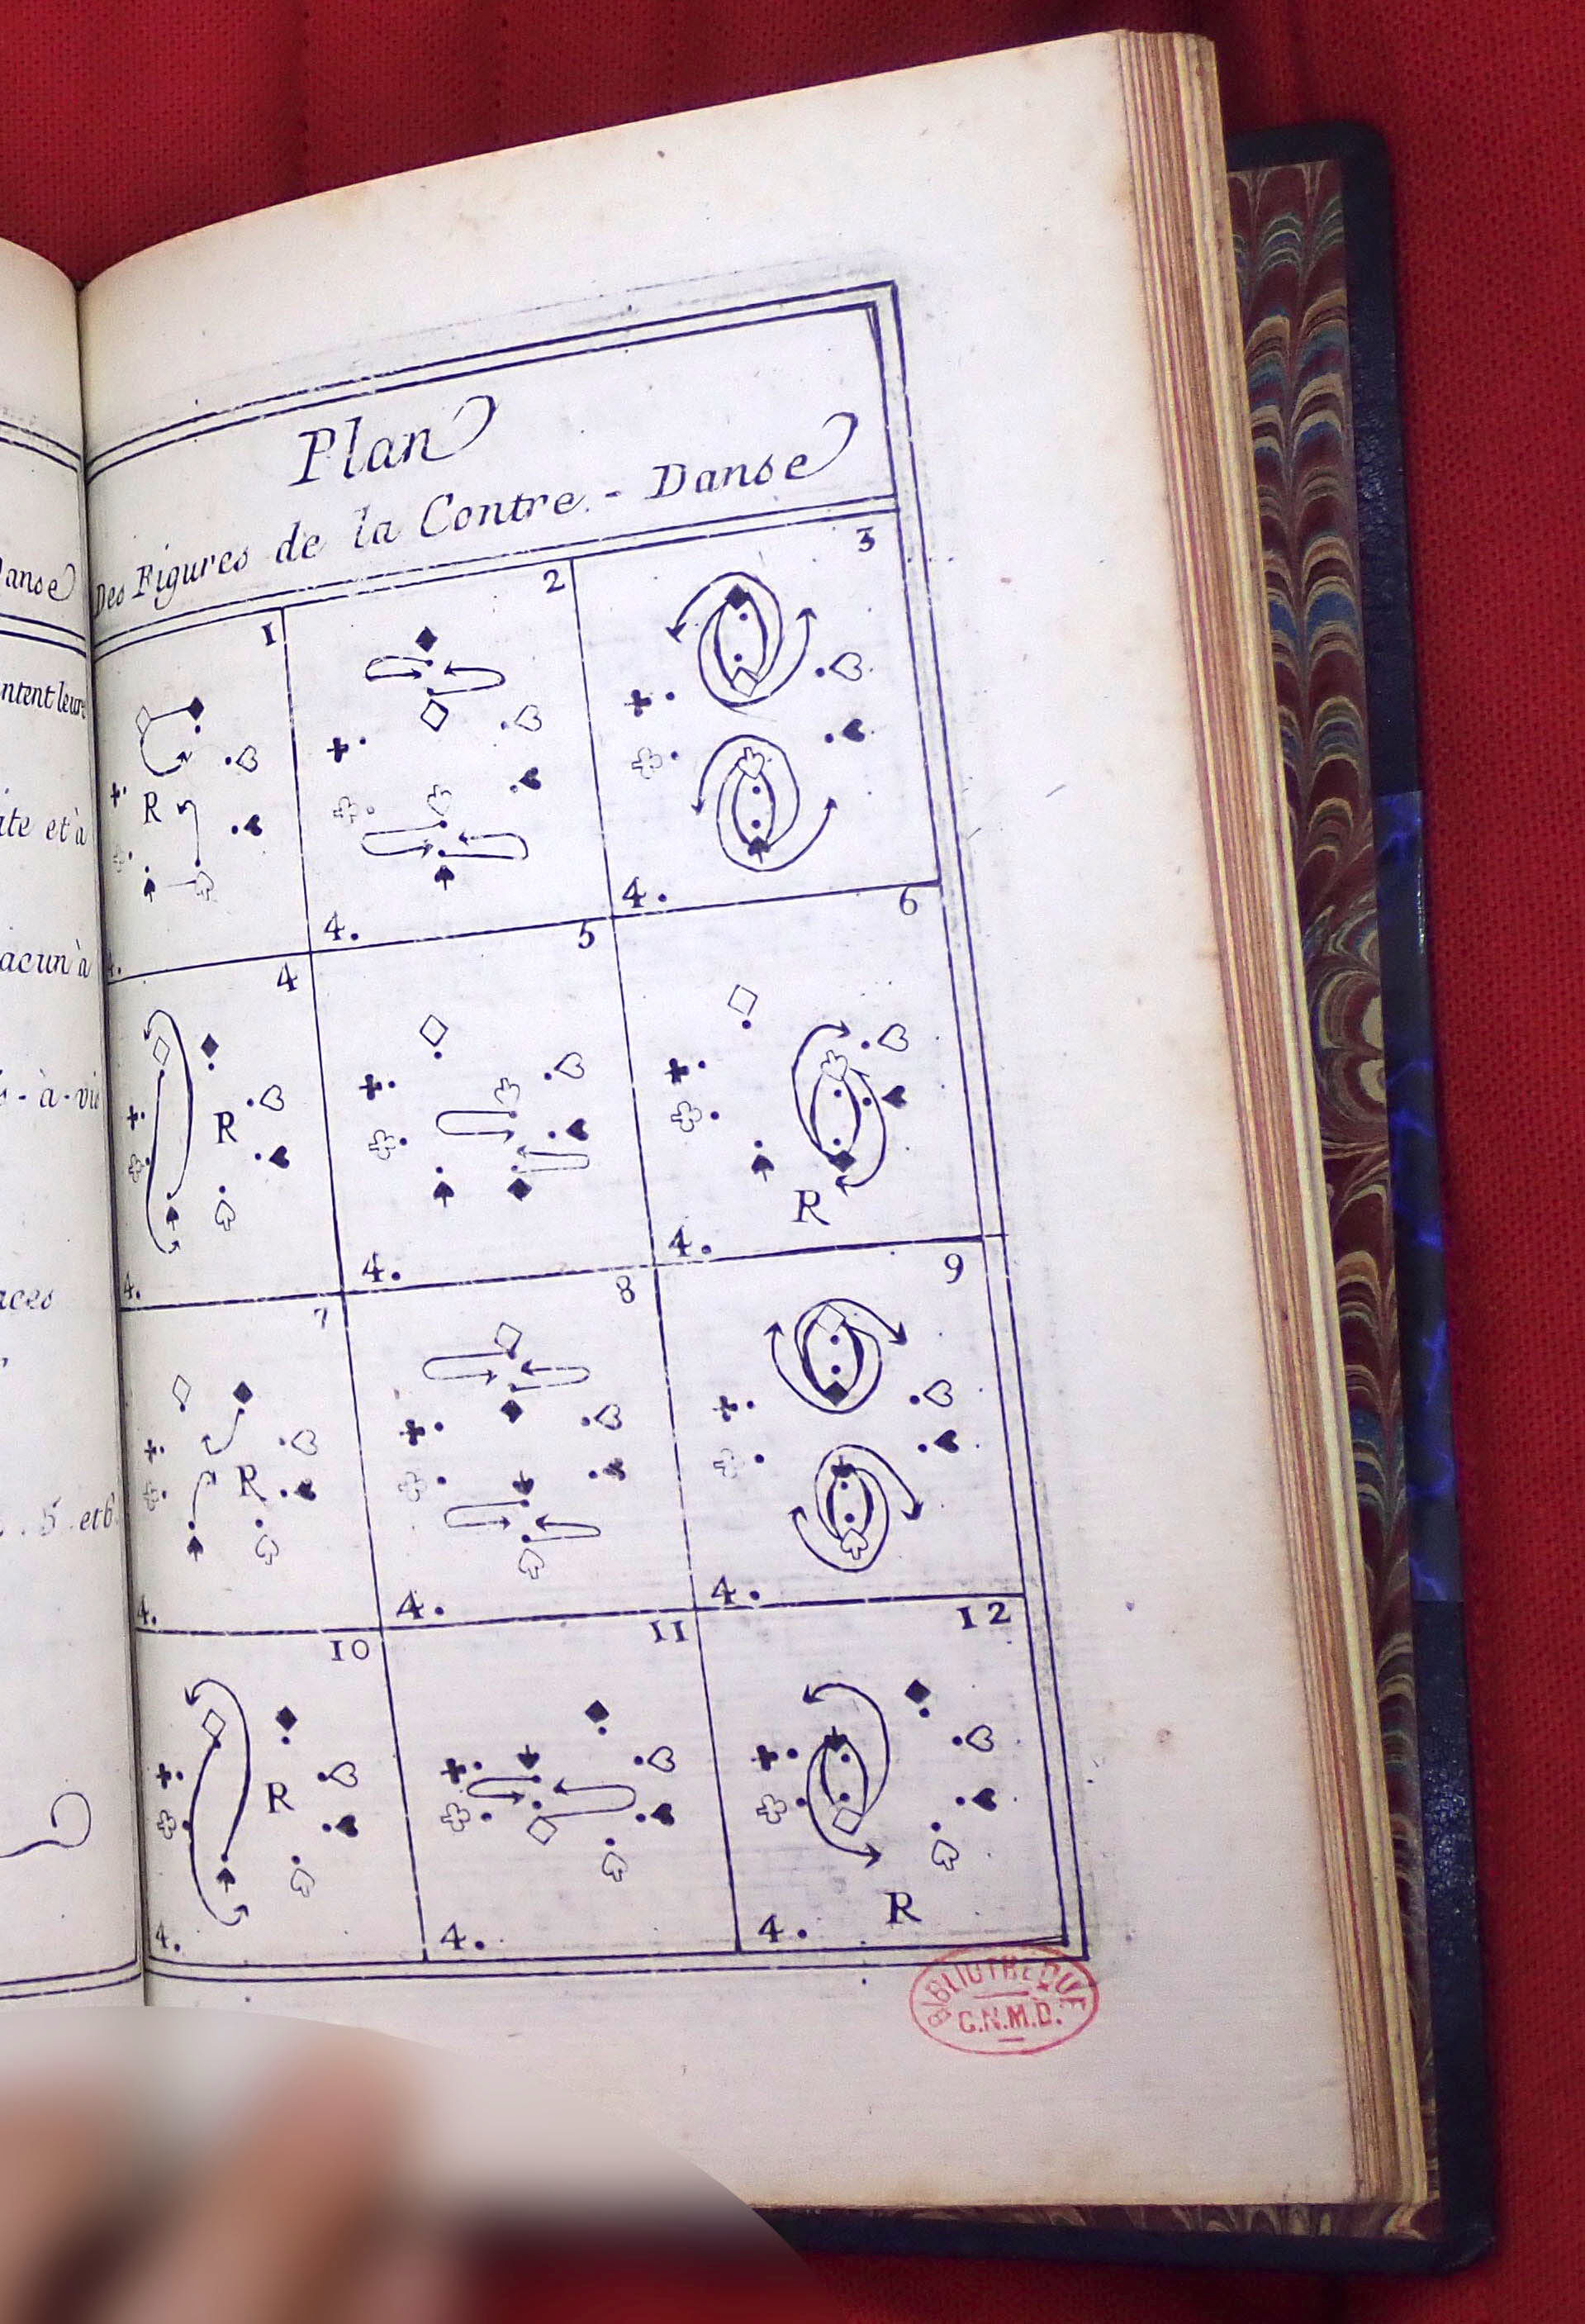 Plan
Des Figures de la Contre - Danse
1
2
3
R
4.
4.
4
5
6
R
R
4.
4.
4.
7
8
9
R
4.
4.
4.
10
11
12
R
R
4.
4.
4.
anse
ntent leurs
ite et à
acun à
s - à - vis
aces
5 . et 6
BIBLIOTHEQUE
C.N.M.D.